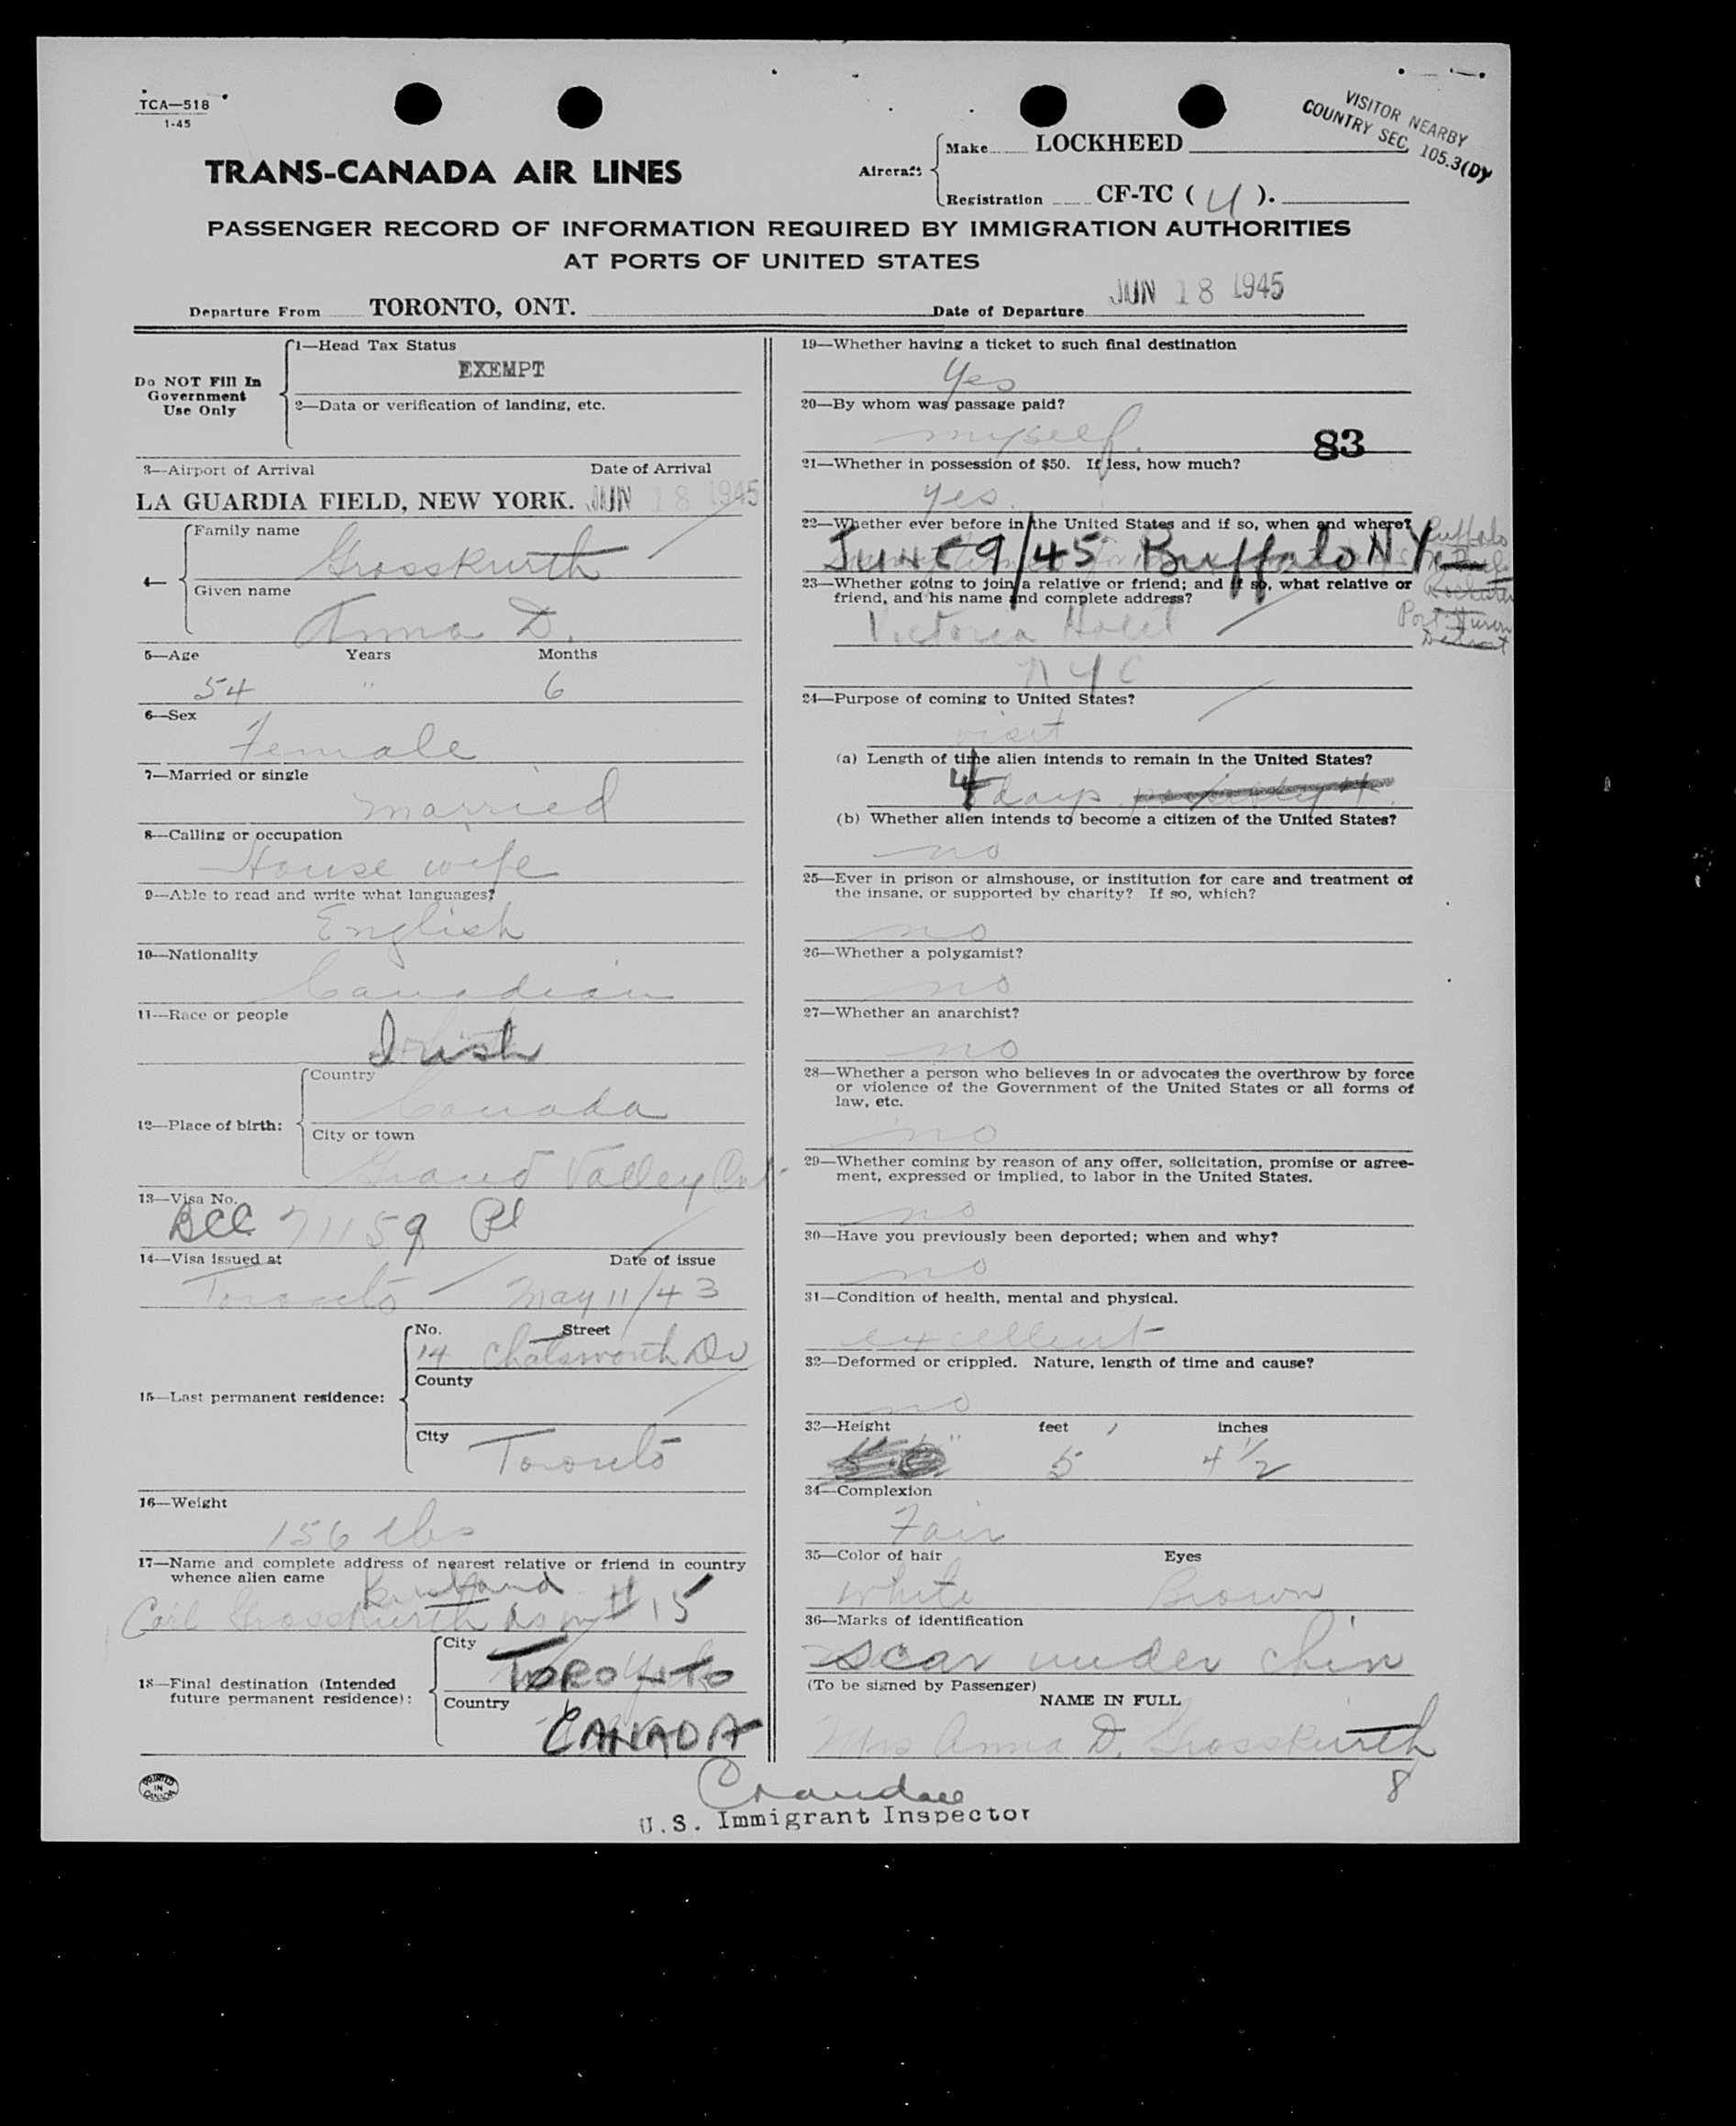 TCA—518
1-45
VISITOR NEARBY
COUNTRY SEC. 105.3(D)
TRANS-CANADA AIR LINES
Aircraft
Make LOCKHEED
Registration CF-TC ( U ).
PASSENGER RECORD OF INFORMATION REQUIRED BY IMMIGRATION AUTHORITIES
AT PORTS OF UNITED STATES
Departure From TORONTO, ONT. Date of Departure JUN 18 1945
Do NOT Fill In
Government
Use Only
1—Head Tax Status
EXEMPT
2—Data or verification of landing, etc.
3—Airport of Arrival Date of Arrival
LA GUARDIA FIELD, NEW YORK. JUN 18 1945
4—
Family name
Grosskurth
Given name
Anna D.
5—Age Years Months
54 " 6
6—Sex
Female
7—Married or single
married
8—Calling or occupation
House wife
9—Able to read and write what languages?
English
10—Nationality
Canadian
11—Race or people
Irish
12—Place of birth:
Country
Canada
City or town
Grand Valley Ont.
13—Visa No.
BCC 71159
14—Visa issued at Date of issue
Toronto May 11/43
15—Last permanent residence:
No. Street
14 Chatsworth Dr
County
City
Toronto
16—Weight
156 lbs
17—Name and complete address of nearest relative or friend in country
whence alien came
husband
Carl Grosskurth as in # 15
18—Final destination (Intended
future permanent residence):
City
TORONTO
Country
CANADA
19—Whether having a ticket to such final destination
Yes
20—By whom was passage paid?
myself.
83
21—Whether in possession of $50. If less, how much?
yes
22—Whether ever before in the United States and if so, when and where?
June 9/45 Buffalo N.Y.
Buffalo
Rochester
Port Huron
Detroit
23—Whether going to join a relative or friend; and if so, what relative or
friend, and his name and complete address?
Victoria Hotel
NYC
24—Purpose of coming to United States?
visit
(a) Length of time alien intends to remain in the United States?
4 days
(b) Whether alien intends to become a citizen of the United States?
no
25—Ever in prison or almshouse, or institution for care and treatment of
the insane, or supported by charity? If so, which?
no
26—Whether a polygamist?
no
27—Whether an anarchist?
no
28—Whether a person who believes in or advocates the overthrow by force
or violence of the Government of the United States or all forms of
law, etc.
no
29—Whether coming by reason of any offer, solicitation, promise or agree-
ment, expressed or implied, to labor in the United States.
no
30—Have you previously been deported; when and why?
no
31—Condition of health, mental and physical.
excellent
32—Deformed or crippled. Nature, length of time and cause?
no
33—Height feet inches
5 4 1/2
34—Complexion
Fair
35—Color of hair Eyes
White Brown
36—Marks of identification
scar under chin
(To be signed by Passenger)
NAME IN FULL
Mrs Anna D. Grosskurth
8
PRINTED
IN
CANADA
U.S. Immigrant Inspector